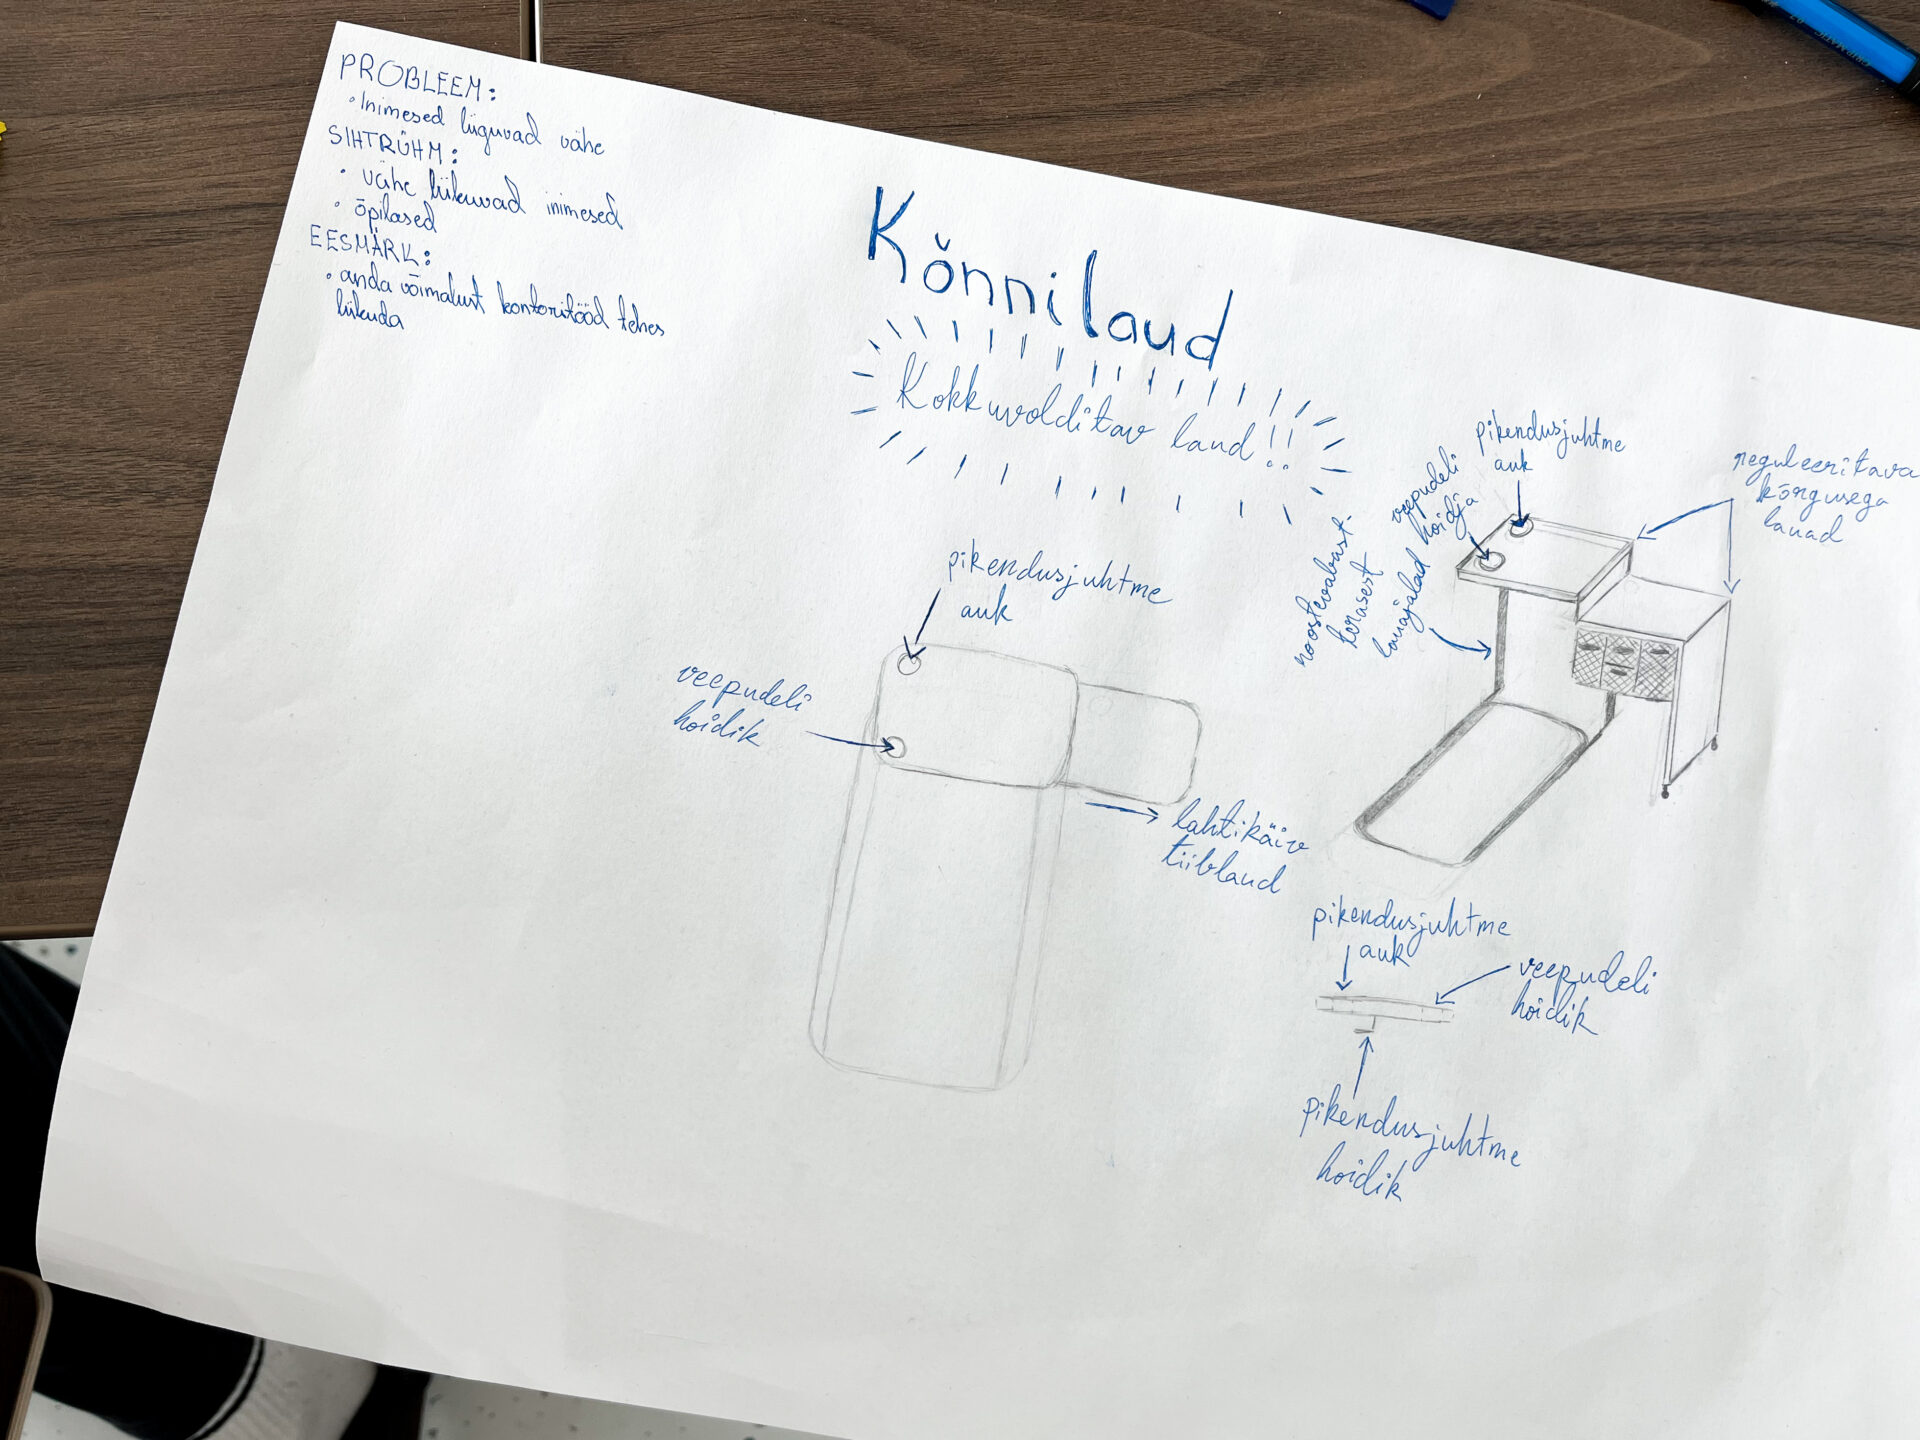 PROBLEEM:
• Inimesed liiguvad vähe
SIHTRÜHM:
• vähe liikuvad inimesed
• õpilased
EESMÄRK:
• anda võimalust kontoritööd tehes
liikuda
Kõnnilaud
Kokkuvolditav laud!!
pikendusjuhtme
auk
veepudeli
hoidja
reguleeritava
kõrgusega
lauad
roostevabast
terasest
lauajalad
pikendusjuhtme
auk
veepudeli
hoidik
lahtikäiv
tiiblaud
pikendusjuhtme
auk
veepudeli
hoidik
pikendusjuhtme
hoidik